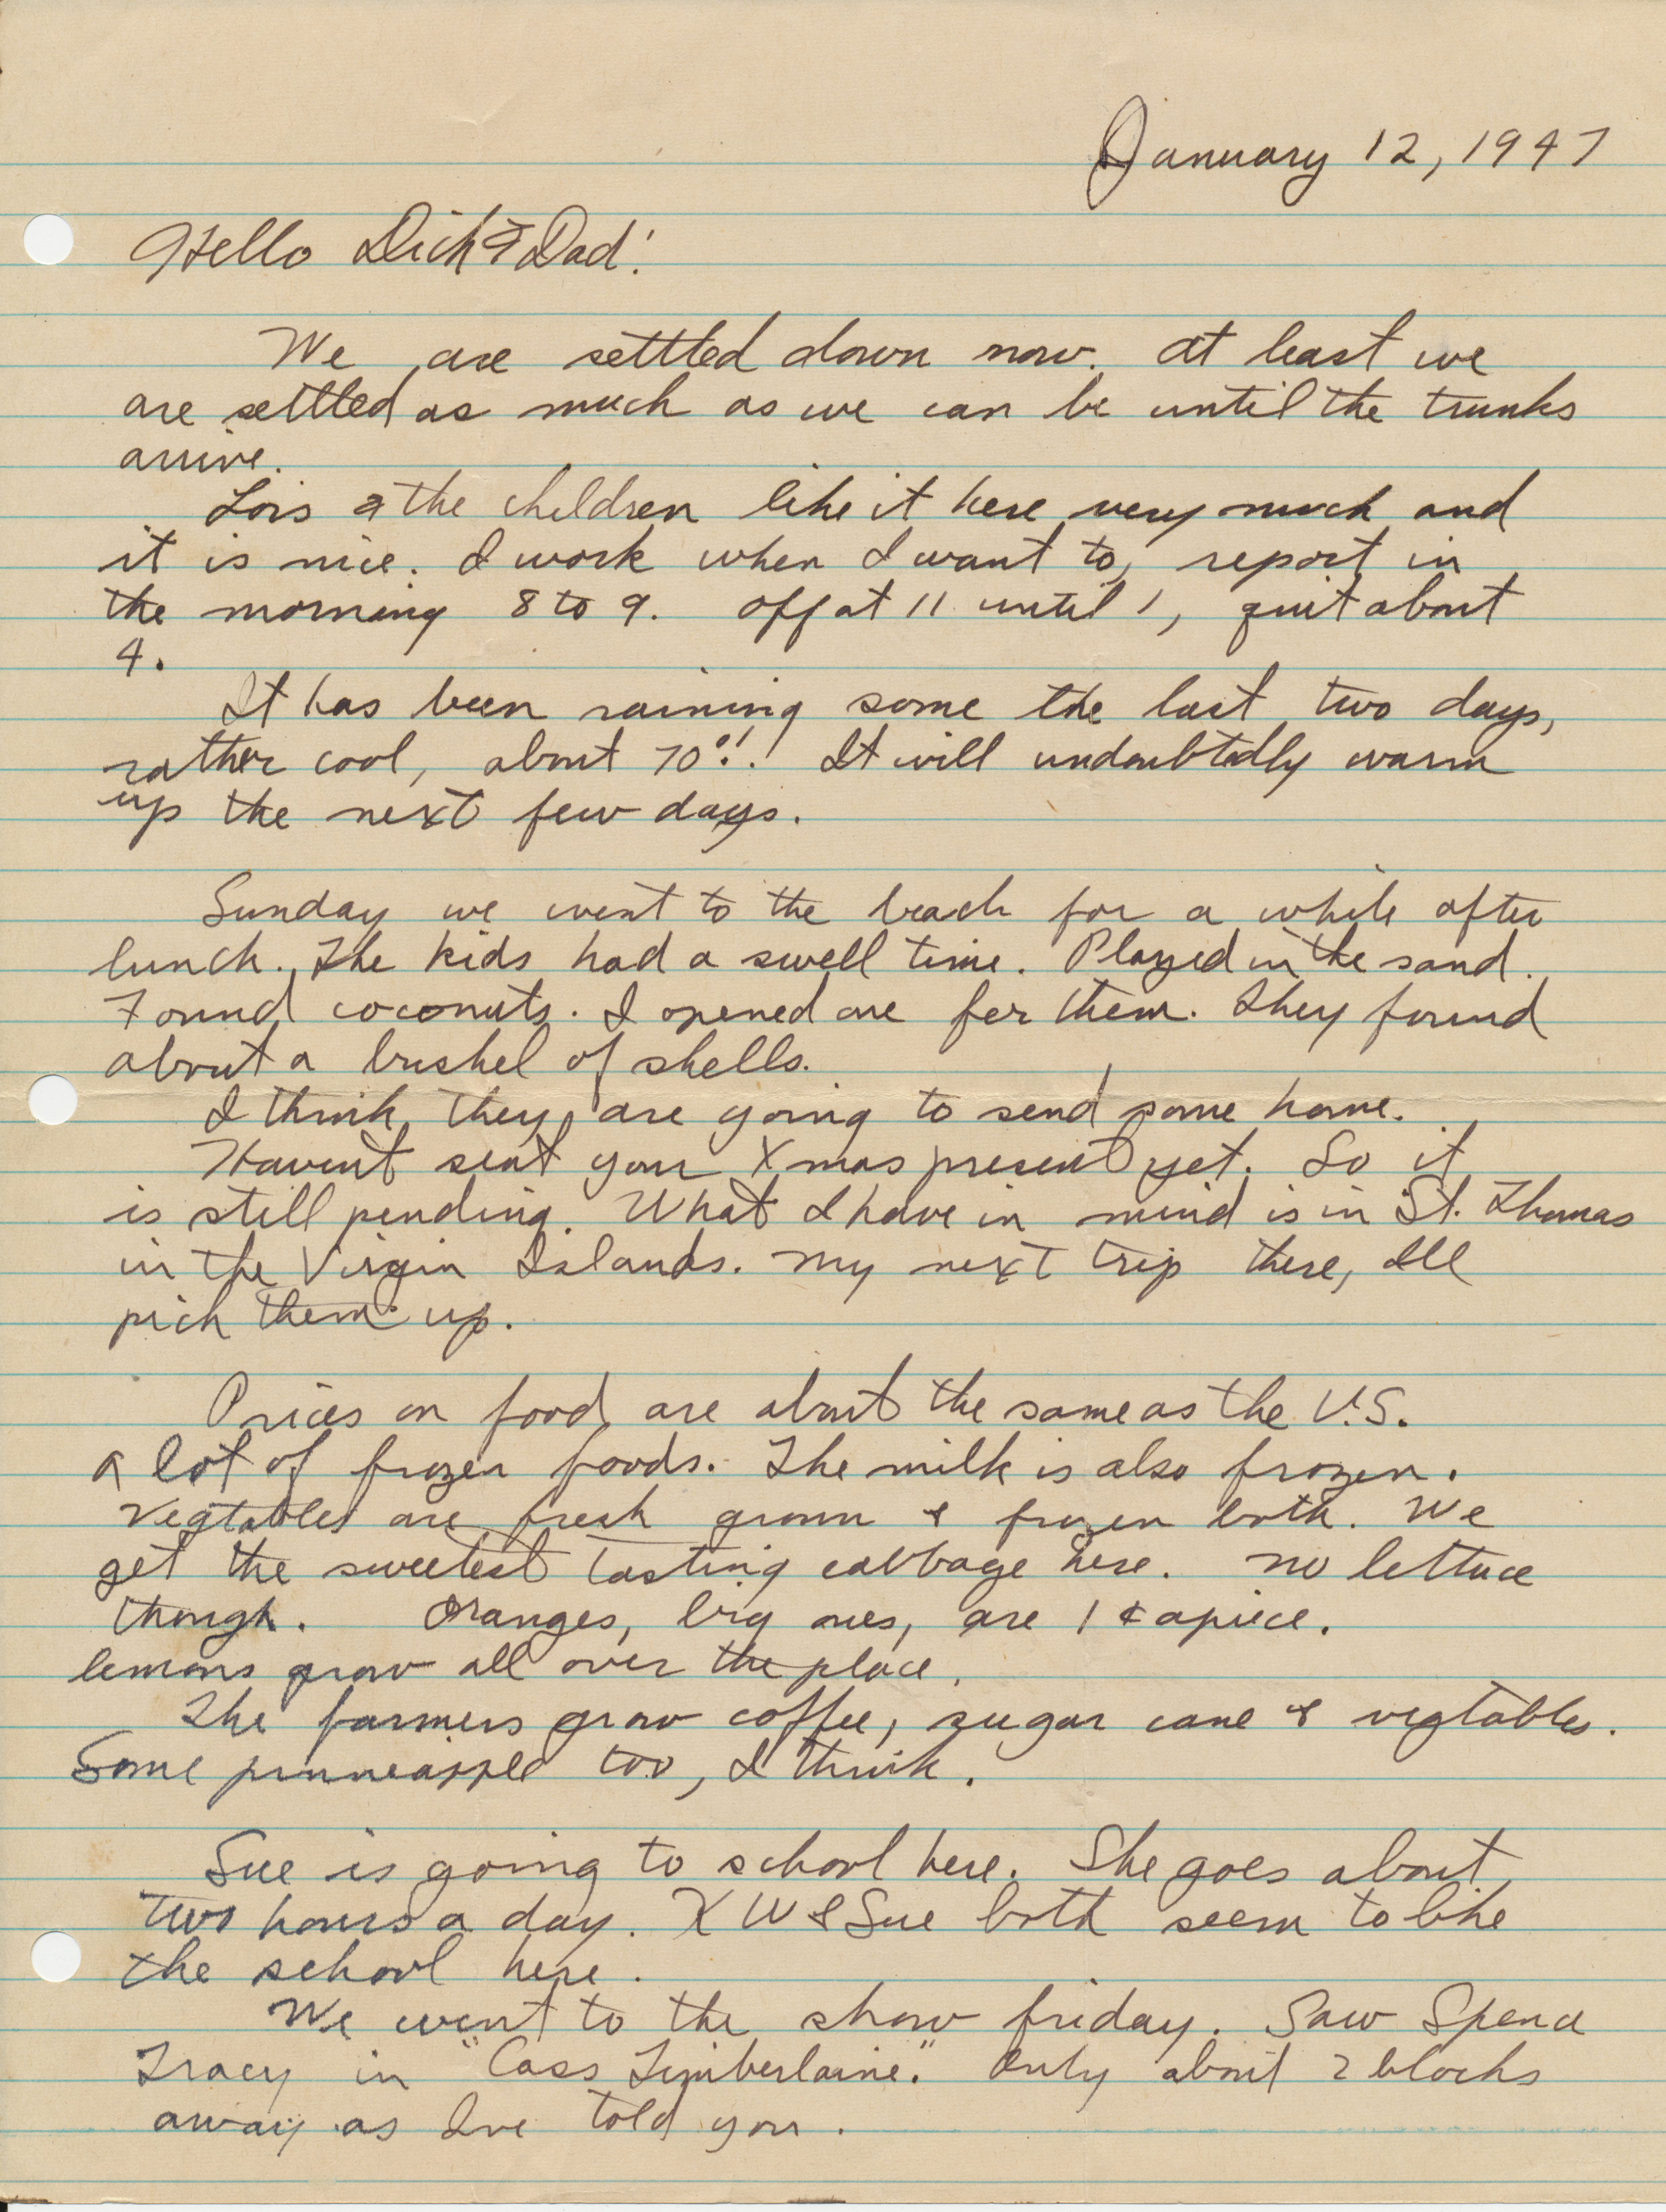 January 12, 1947
Hello Dick & Dad!
We are settled down now. At least we
are settled as much as we can be until the trunks
arrive.
Lois & the children like it here very much and
it is nice. I work when I want to, report in
the morning 8 to 9. Off at 11 until 1, quit about
4.
It has been raining some the last two days,
rather cool, about 70°!! It will undoubtedly warm
up the next few days.
Sunday we went to the beach for a while after
lunch. The kids had a swell time. Played in the sand.
Found coconuts. I opened one for them. They found
about a bushel of shells.
I think they are going to send some home.
Havent sent your Xmas present yet. So it
is still pending. What I have in mind is in St. Thomas
in the Virgin Islands. My next trip there, Ill
pick them up.
Prices on food are about the same as the U.S.
A lot of frozen foods. The milk is also frozen.
Vegtables are fresh grown & frozen both. We
get the sweetest tasting cabbage here. No lettuce
though. Oranges, big ones, are 1¢ apiece.
lemons grow all over the place.
The farmers grow coffee, sugar cane & vegtables.
Some pinneapple too, I think.
Sue is going to school here. She goes about
two hours a day. K W & Sue both seem to like
the school here.
We went to the show friday. Saw Spence
Tracy in "Cass Timberlaine." Only about 2 blocks
away as Ive told you.